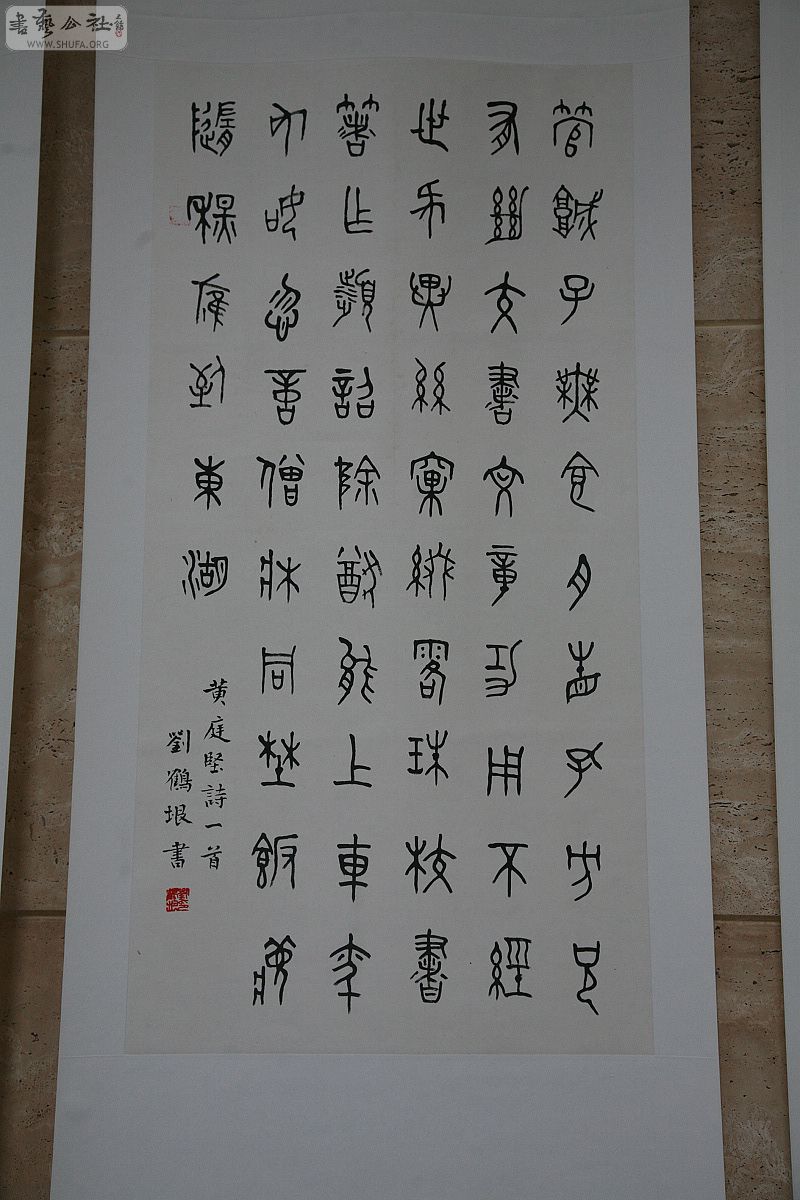 書藝公社
WWW.SHUFA.ORG
管城子無食肉相孔方兄
有絕交書文章功用不經
世何異絲窠綴露珠校書
著作頻詔除猶能上車問
何如忽憶僧牀同野飯夢
隨秋雁到東湖
黄庭堅詩一首
劉鶴垠書